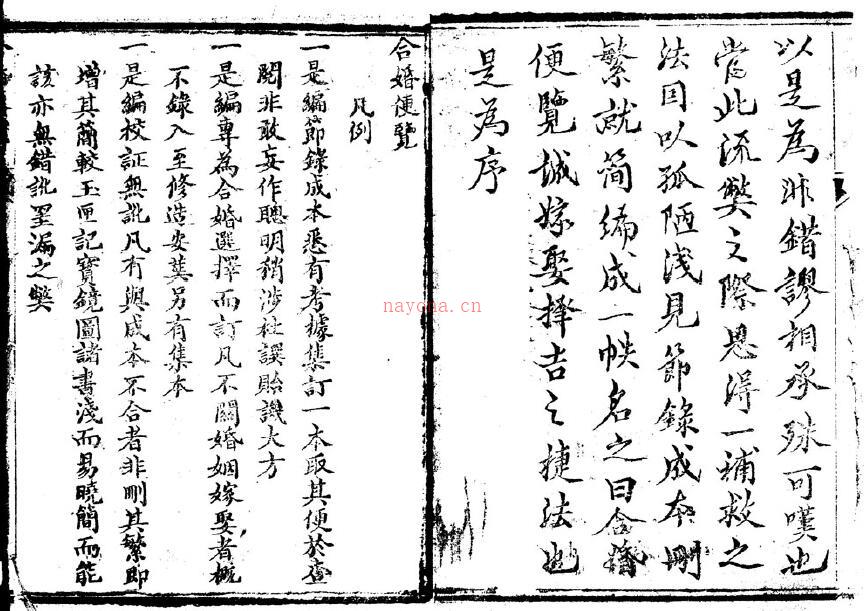 以是為非錯謬相承殊可嘆也
當此流獘之際思得一補救之
法因以孤陋淺見節錄成本刪
繁就简編成一帙名之曰合婚
便覽誠嫁娶擇吉之捷法也
是為序
合婚便覽
凡例
一是編節錄成本悉有考據集訂一本取其便於查
閱非敢妄作聰明稍涉杜譔貽譏大方
一是編專為合婚選擇而訂凡不關婚姻嫁娶者概
不錄入至修造安葬另有集本
一是編校証無訛凡有與成本不合者非刪其繁即
增其簡較玉匣記寶鏡圖諸書淺而易曉簡而能
該亦無錯訛罣漏之獘
nayona.cn